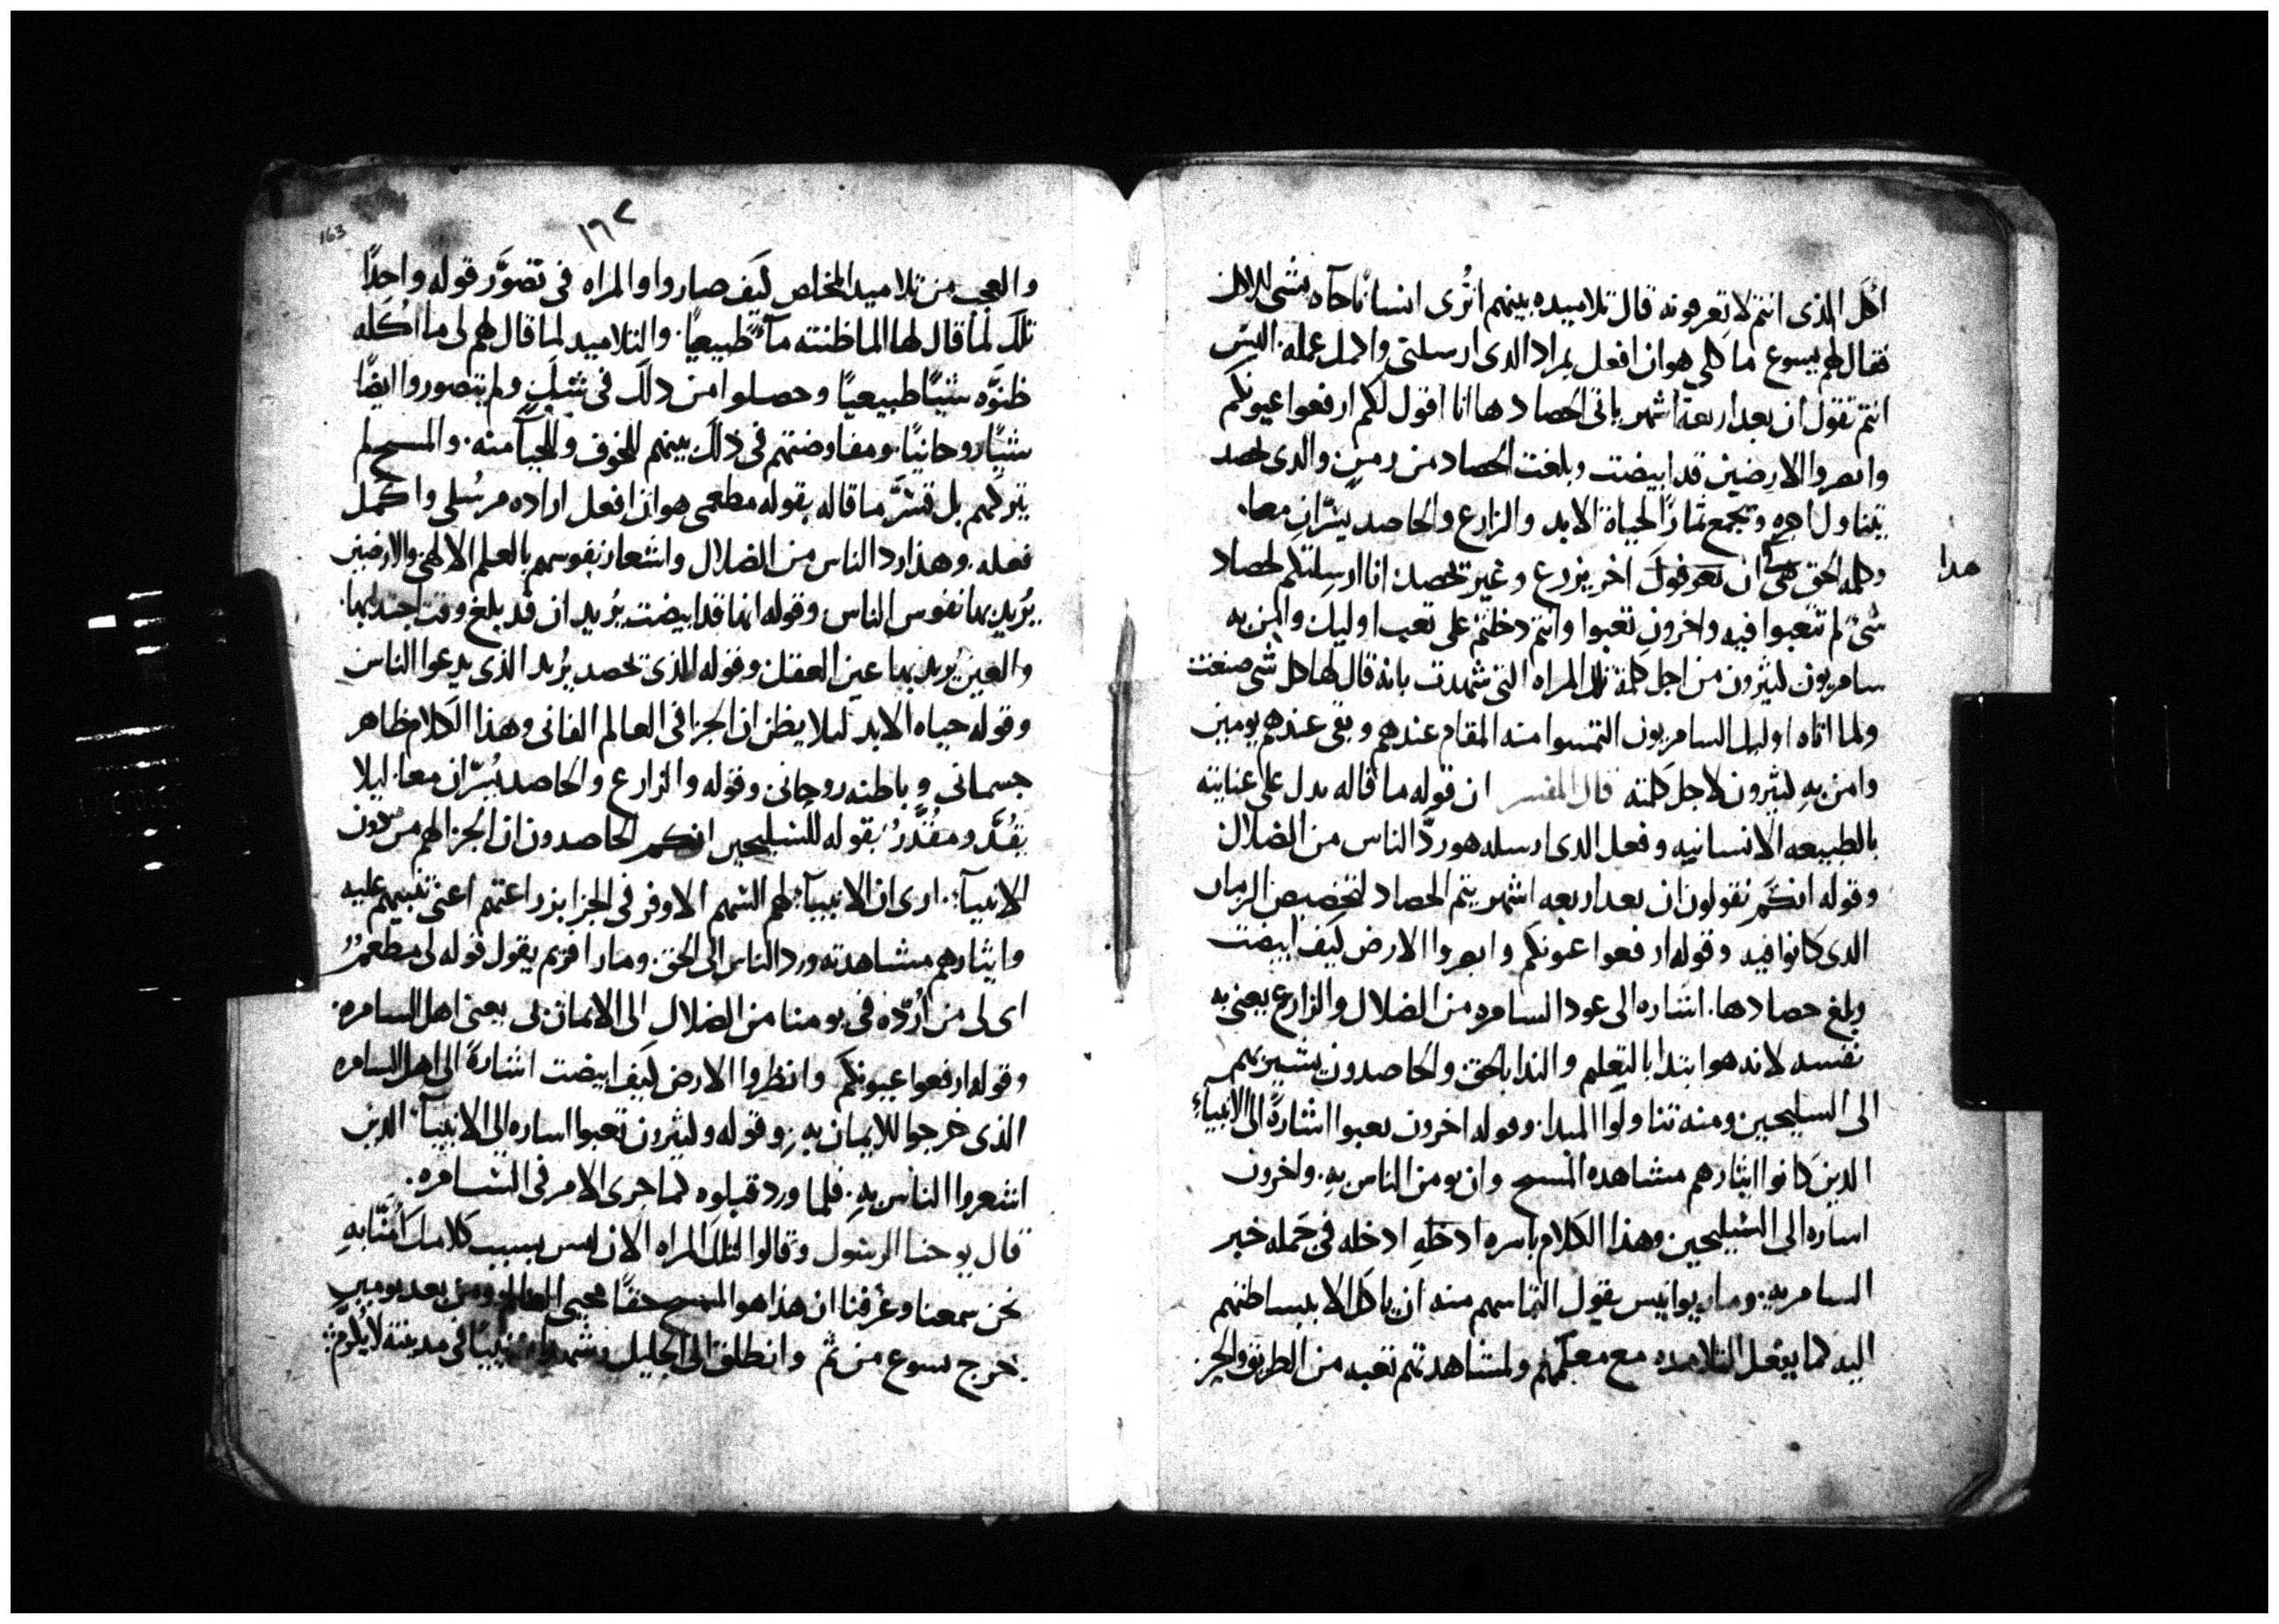 اكل الذى انتم لا تعرفونه قال تلاميذه بينهم اترى انسانا جآه بشى للاكل
فقال لهم يسوع ماكلى هو ان افعل مراد الدى ارسلنى واكمل عمله. اليس
انتم تقول ان بعد اربعة اشهر ياتى الحصاد ها انا اقول لكم ارفعوا عيونكم
وابصروا الارضين قد ابيضت وبلغت الحصاد من زمن والدى يحصد
يتناول اجره ويجمع ثمار الحياة الابد والزارع والحاصد يسران معا.
وكلمه الحق هى ان اخر يزرع وغيره يحصد انا ارسلتكم لحصاد
هدا
شى لم تتعبوا فيه واخرون تعبوا وانتم دخلتم على تعب اوليك وامن به
سامريون كثيرون من اجل كلمة تلك المراه التى شهدت بانه قال لها كل شى صنعت
ولما اتاه اوليك السامريون التمسوا منه المقام عندهم وبقى عندهم يومين
وامن به كثيرون لاجل كلمته قال المفسر ان قوله ما قاله يدل على عنايته
بالطبيعه الانسانيه وفعل الدى ارسله هو ردّ الناس من الضلال
وقوله انكم تقولون ان بعد اربعه اشهر يتم الحصاد لتخصيص الزمان
الدى كانوا فيه وقوله ارفعوا عيونكم وابصروا الارض كيف ابيضت
وبلغ حصادها. اشاره الى عود السامره من الضلال والزارع يعنى به
نفسه لانه هو ابتدا بالتعليم والندا بالحق والحاصدون يشير بهم
الى السليحين ومنه تناولوا المبدا. وقوله اخرون تعبوا اشارة الى الانبياء
الدين كانوا ايثارهم مشاهده المسيح وان يومن الناس به. واخرون
اشاره الى السليحين وهذا الكلام باسره ادخله ادخله فى جمله خبر
السامريه. ومار يوانيس يقول التماسهم منه ان ياكل الا ببساطتهم
اليه كما يفعل التلاميده مع معلمهم ولمشاهدتهم تعبه من الطريق والحر
١٦٢
163
والعجب من تلاميد المخلص كيف صاروا والمراه فى تصوّر قوله واحدًا
تلك لما قال لها الما ظنته مآء طبيعيا. والتلاميد لما قال لهم لى ما اكله
ظنوه شيئًا طبيعيًا وحصلوا من دلك فى شك ولم يتصوروا ايضًا
شيئا روحانيا. ومفاوضتهم فى ذلك بينهم للخوف وللحيآ منه. والمسيح لم
يتركهم بل فسّر ما قاله بقوله مطعمى هو ان افعل اراده مرسلى واكمل
فعله. وهذا رد الناس من الضلال واشعار نفوسهم بالعلم الالهى والارضين
يريد بها نفوس الناس وقوله انها قد ابيضت يريد ان قد بلغ وقت اجتدابها.
والعين يريد بها عين العقل وقوله الذى يحصد يريد الذى يدعوا الناس
وقوله حياه الابد ليلا يظن ان الجزا فى العالم الفانى وهذا الكلام ظاهر
جسمانى وباطنه روحانى وقوله والزارع والحاصد يسرّان معا. ليلا
يقدّر مقدّر بقوله للسليحين انكم الحاصدون ان الجزا لهم من دون
الانبيآء. ارى ان الانبيآء لهم السهم الاوفر فى الجزا بزراعتهم اعنى تنبيههم عليه
وايثارهم مشاهدته ورد الناس الى الحق. ومار افريم يقول قوله لى مطعم
اى لى من اردّه فى يومنا من الضلال الى الايمان بى يعنى اهل السامره.
وقوله ارفعوا عيونكم وانظروا الارض كيف ابيضت اشارة الى اهل السامره
الذى خرجوا للايمان به. وقوله وكثيرون تعبوا اساره الى الانبيآء الدين
اشعروا الناس به. فلما ورد قبلوه كما جرى الامر فى السامره.
قال يوحنا الرسول وقالوا لتلك المراه الان ليس بسبب كلامك امنّا به
نحن سمعنا وعرفنا ان هذا هو المسيح حقًا محيى العالم ومن بعد يومين
خرج يسوع من ثم وانطلق الى الجليل نبيًا فى مدينته لا يكرم